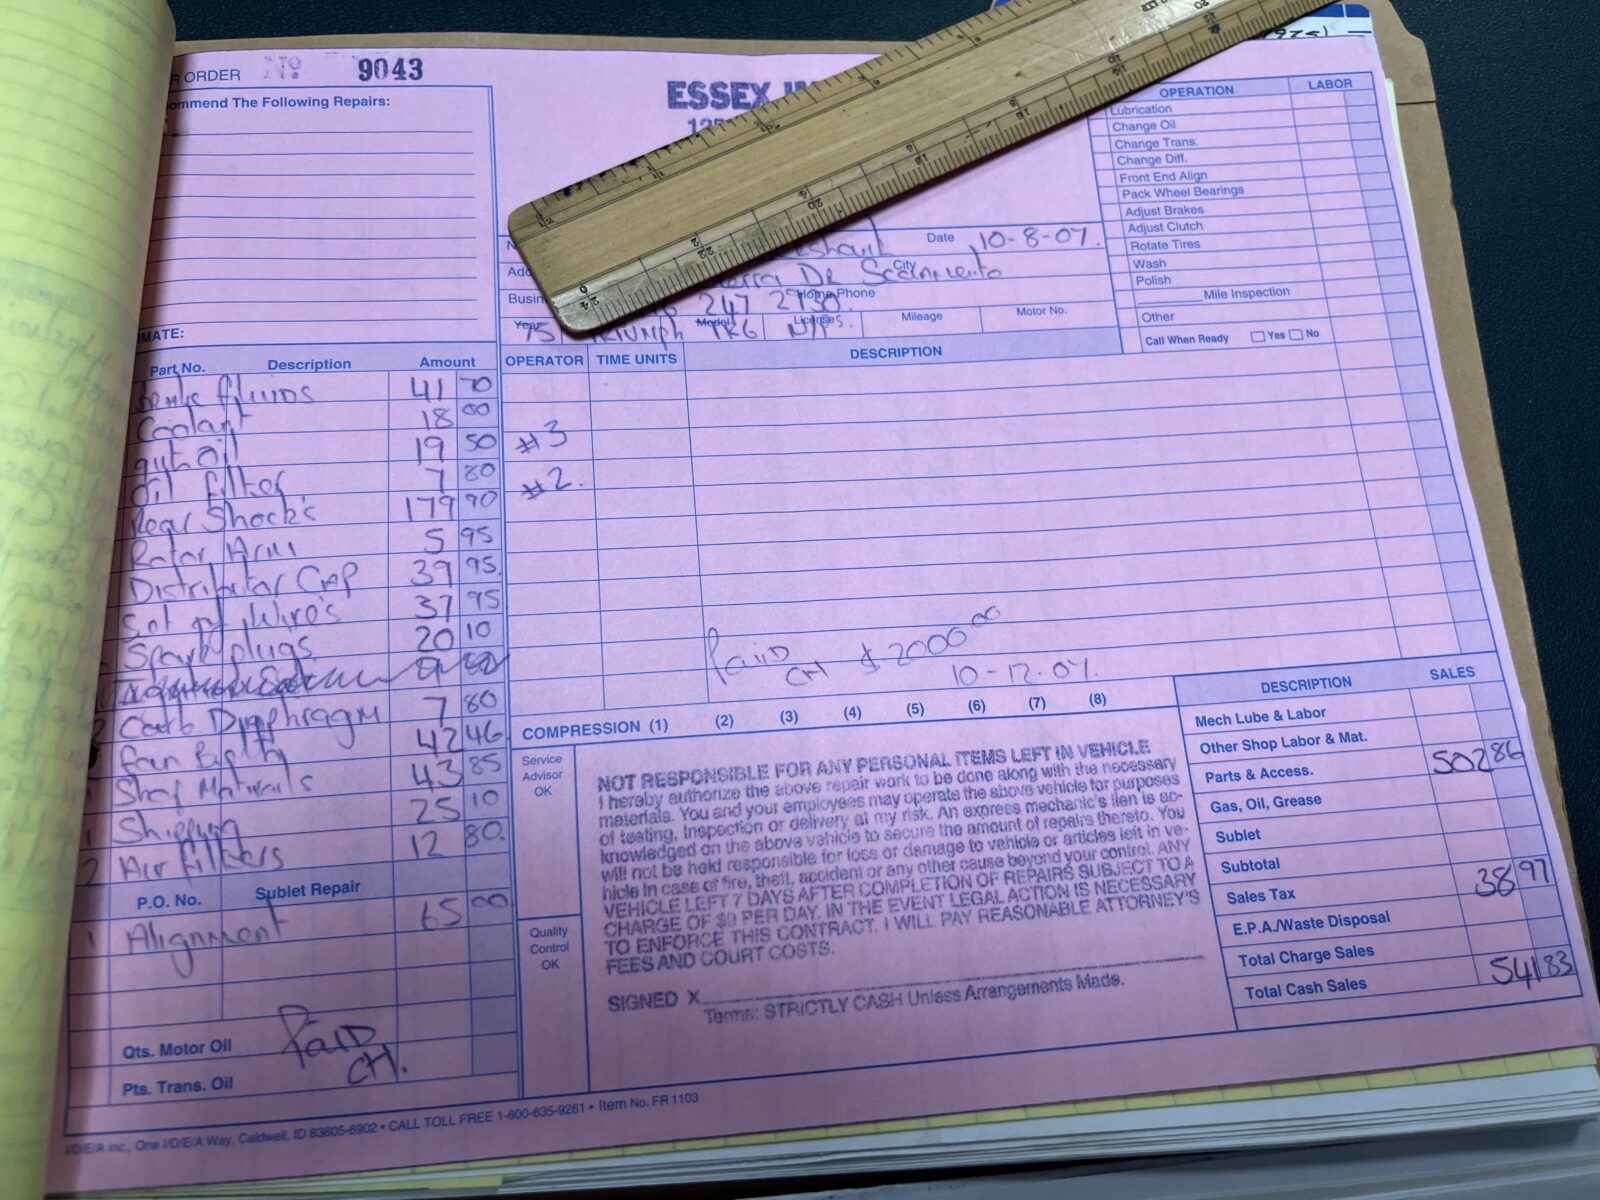 R ORDER No 9043
ommend The Following Repairs:
IMATE:
ESSEX
Date 10-8-07.
City
Dr Sacramento
Home Phone
247 2730
Year Model Licenses Mileage Motor No.
75 TRIUMPH TR6 N/
OPERATION LABOR
Lubrication
Change Oil
Change Trans.
Change Diff.
Front End Align
Pack Wheel Bearings
Adjust Brakes
Adjust Clutch
Rotate Tires
Wash
Polish
Mile Inspection
Other
Call When Ready Yes No
Part No. Description Amount
fluids 41 70
Coolant 18 00
Oil 19 50
Oil filter 7 80
Rear Shocks 179 90
Rotor Arm 5 95
Distributor Cap 39 95
Set of Wires 37 95
Spark plugs 20 10
2 Carb Diaphragm 7 80
Fan Belt 42 46
Shop Materials 43 85
1 Shipping 25 10
2 Air filters 12 80.
P.O. No. Sublet Repair
1 Alignment 65 00
Qts. Motor Oil
Pts. Trans. Oil
Paid
CH.
OPERATOR TIME UNITS DESCRIPTION
#3
#2.
Paid
CH $2000 00
10-12-07.
COMPRESSION (1) (2) (3) (4) (5) (6) (7) (8)
Service
Advisor
OK
Quality
Control
OK
NOT RESPONSIBLE FOR ANY PERSONAL ITEMS LEFT IN VEHICLE
I hereby authorize the above repair work to be done along with the necessary
materials. You and your employees may operate the above vehicle for purposes
of testing, inspection or delivery at my risk. An express mechanic's lien is ac-
knowledged on the above vehicle to secure the amount of repairs thereto. You
will not be held responsible for loss or damage to vehicle or articles left in ve-
hicle in case of fire, theft, accident or any other cause beyond your control. ANY
VEHICLE LEFT 7 DAYS AFTER COMPLETION OF REPAIRS SUBJECT TO A
CHARGE OF PER DAY. IN THE EVENT LEGAL ACTION IS NECESSARY
TO ENFORCE THIS CONTRACT. I WILL PAY REASONABLE ATTORNEY'S
FEES AND COURT COSTS.
SIGNED X
Terms: STRICTLY CASH Unless Arrangements Made.
DESCRIPTION SALES
Mech Lube & Labor
Other Shop Labor & Mat.
Parts & Access. 502 86
Gas, Oil, Grease
Sublet
Subtotal
Sales Tax 38 97
E.P.A./Waste Disposal
Total Charge Sales
Total Cash Sales 541 83
I/D/E/A inc., One I/D/E/A Way, Caldwell, ID 83605-6902 • CALL TOLL FREE 1-800-635-9261 • Item No. FR 1103